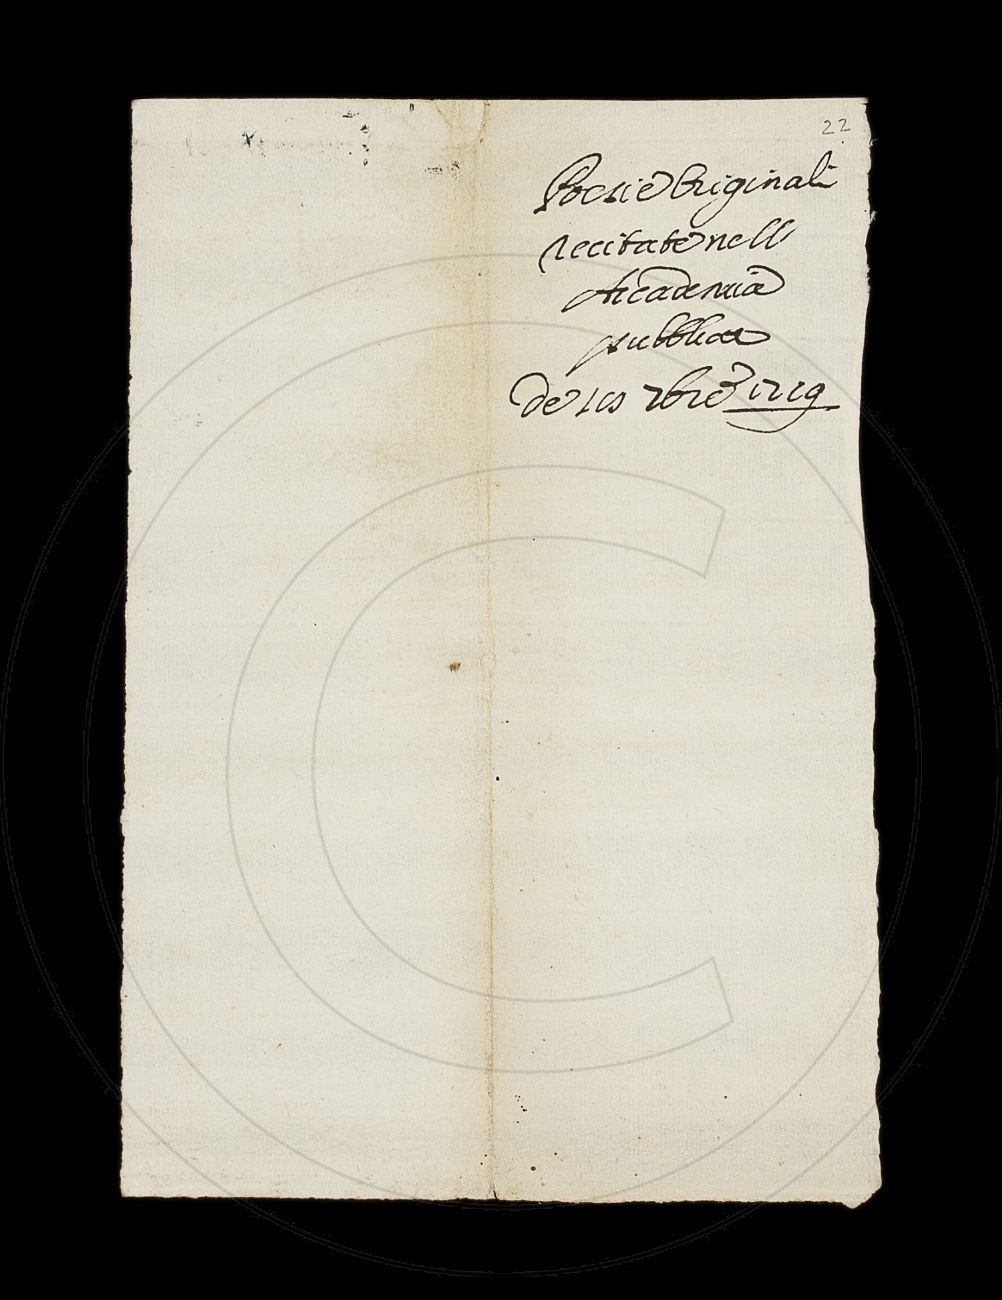 22
Poesie Originali
recitate nell
Accademia
publica
de 7bre 1719